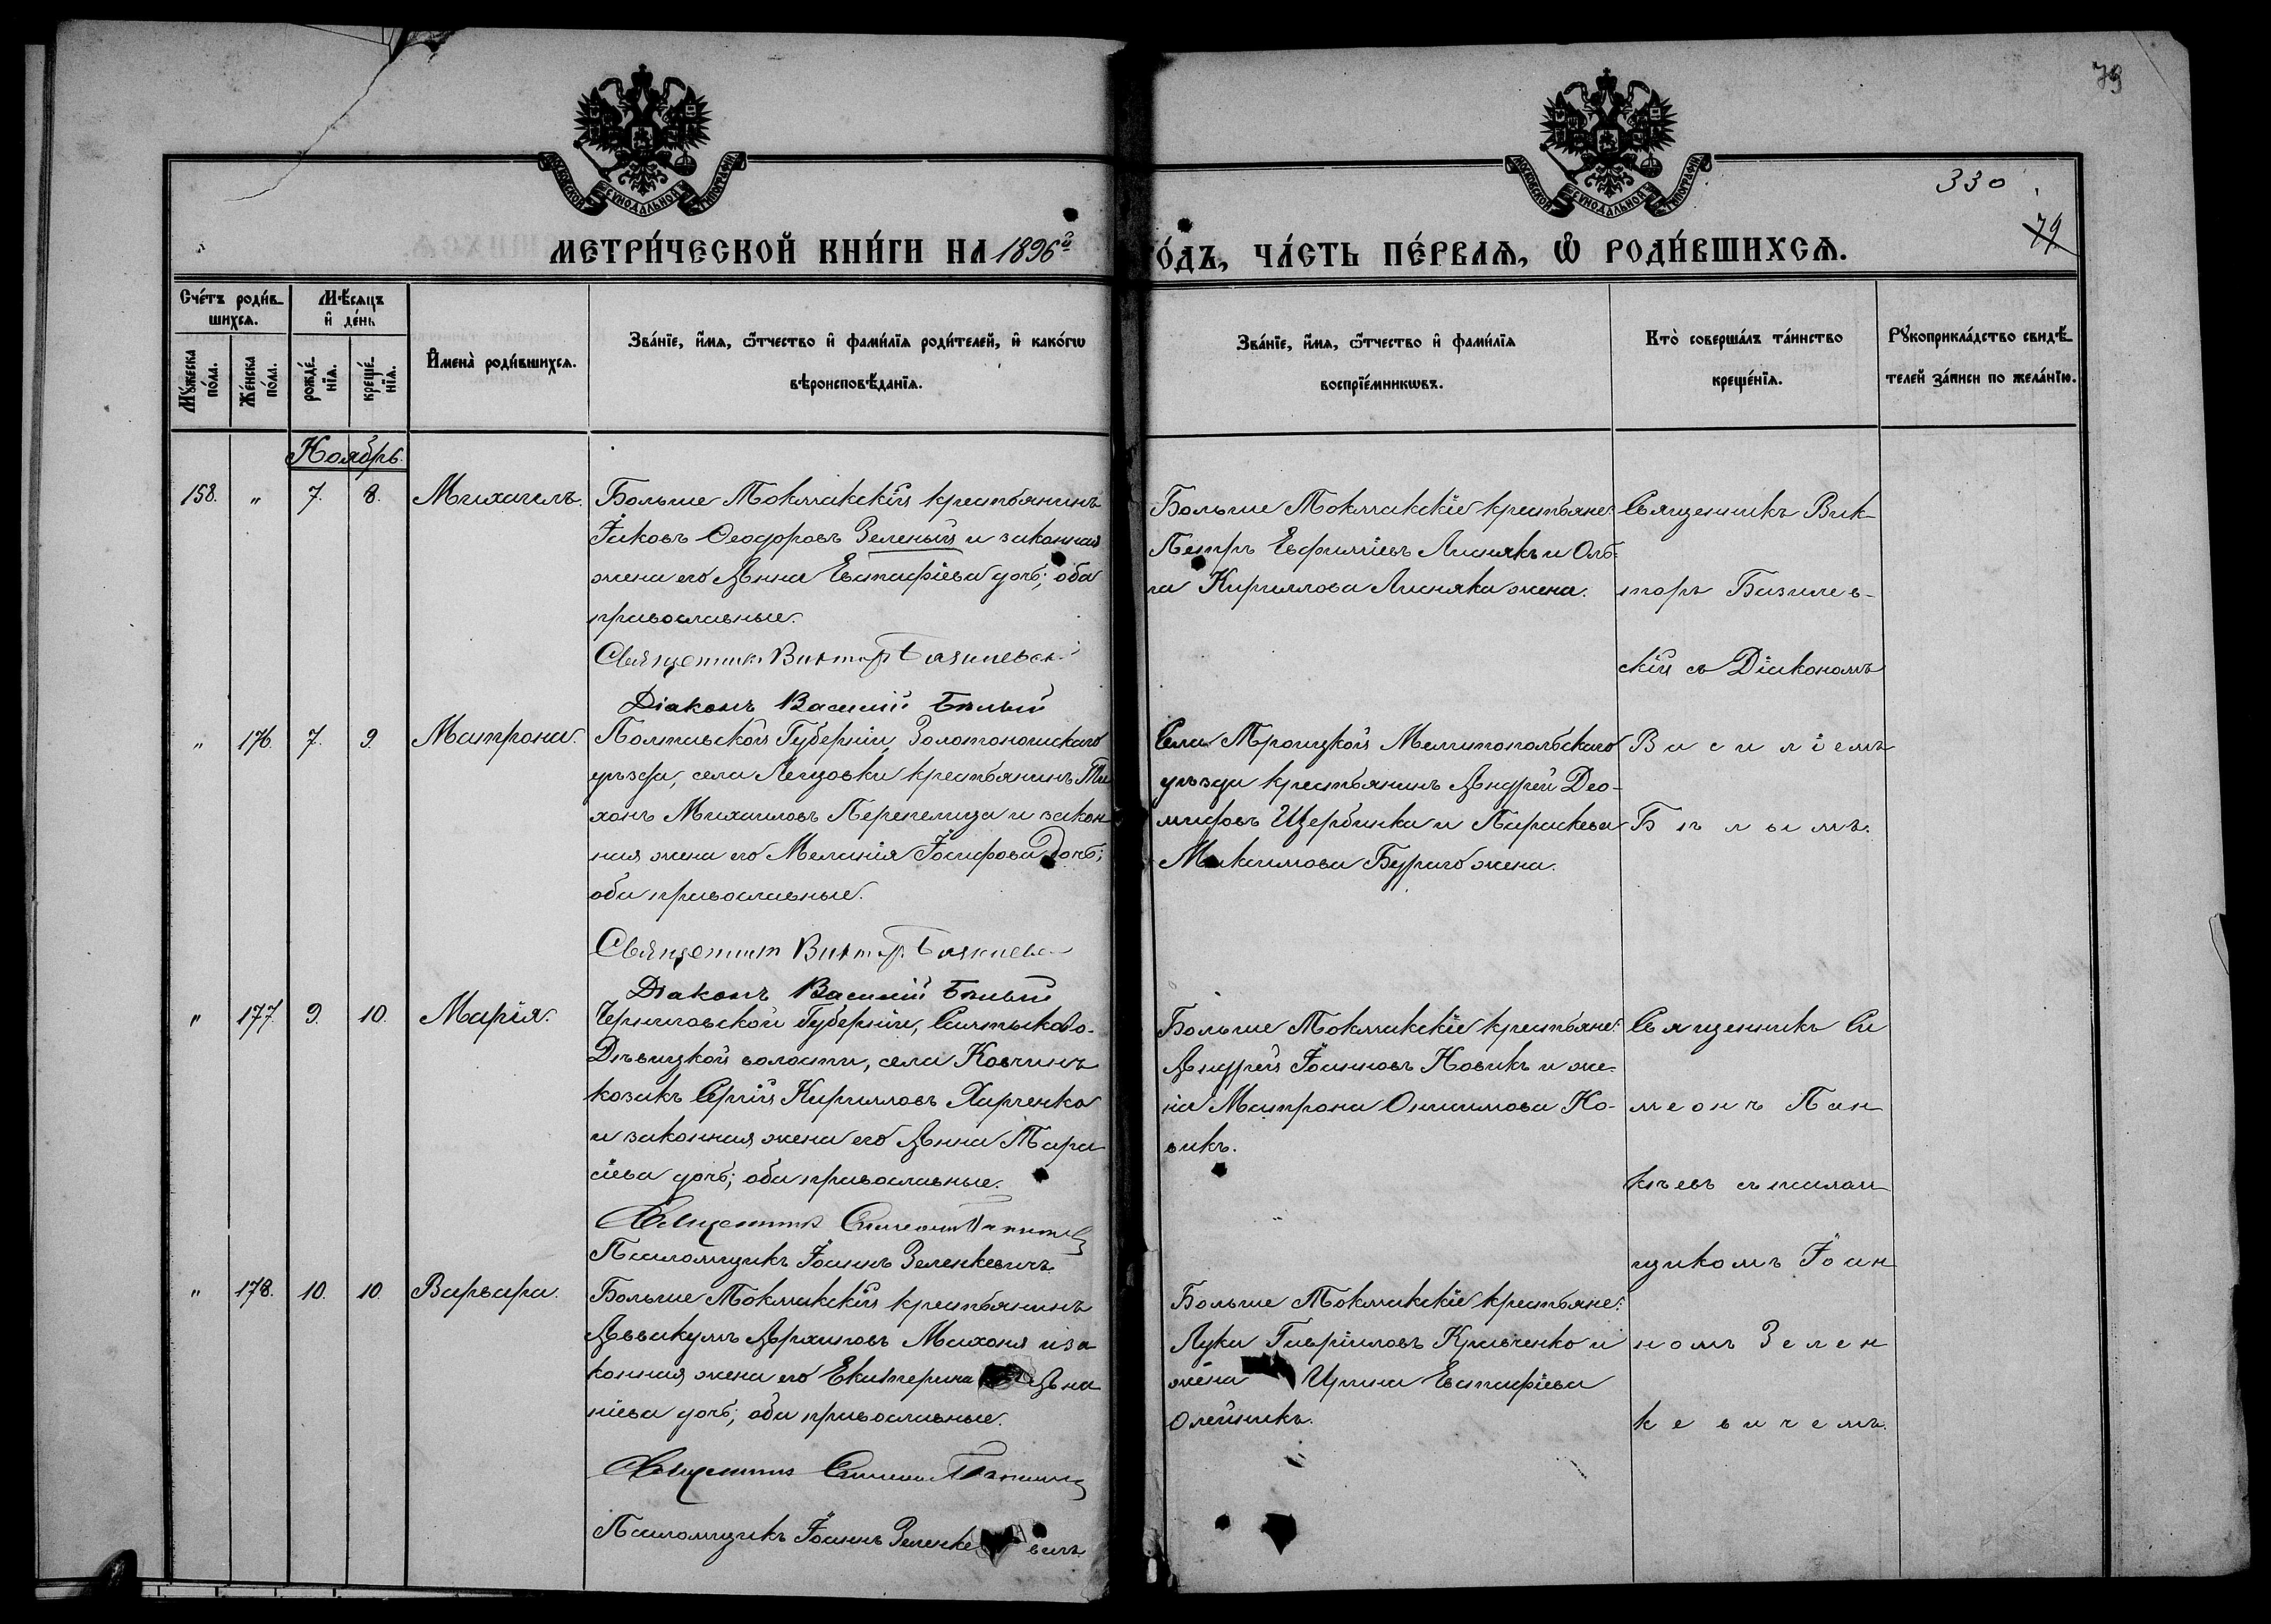 79
МОСКОВСКОЙ СѴНОДАЛЬНОЙ ТИПОГРАФІИ
МОСКОВСКОЙ СѴНОДАЛЬНОЙ ТИПОГРАФІИ
330
79
МЕТРИ́ЧЕСКОЙ КНИ́ГИ НА 1896й
О́ДЪ, ЧА́СТЬ ПЕ́РВАѦ, Ѽ РОДИ́ВШИХСѦ.
Сче́тъ роди́в
шихсѧ.
Мѣ́сѧцъ
и҆ де́нь
Мꙋ́жеска
по́ла.
Же́нска
по́ла.
рожде́
нїѧ.
креще́
нїѧ.
И҆мена̀ роди́вшихсѧ.
Зва́нїе, и҆́мѧ, ѻ҆́тчество и҆ фами́лїѧ роди́телей, и҆ како́гѡ
вѣроисповѣ́данїѧ.
Зва́нїе, и҆́мѧ, ѻ҆́тчество и҆ фами́лїѧ
воспрїе́мникѡвъ.
Кто̀ соверша́лъ та́инство
креще́нїѧ.
Рꙋкоприкла́дство свидѣ́
телей за́писи по жела́нїю.
Ноябрь.
158. " 7. 8. Михаилъ.
Больше Токмакскій крестьянинъ
Іаковъ Ѳеодоровъ Зеленый и законная
жена его Анна Евстафіева дочь; оба
православные.
Священникъ Викторъ Базилевск
Діаконъ Василій Бѣлый
Больше Токмакскіе крестьяне:
Петръ Евфиміевъ Лисняк и Оль-
га Кириллова Лисняка жена.
Священникъ Вик-
торъ Базилев-
скій съ Діакономъ
" 176. 7. 9. Матрона.
Полтавской Губерніи, Золотоношскаго
уѣзда, села Лецовки крестьянинъ Ти
хонъ Михаиловъ Перепелица и закон
ная жена его Меланія Іосифова дочь;
оба православные.
Священник Виктор Базилевс
Діаконъ Василій Бѣлый
Села Троицкой Мелитопольскаго
уѣзда крестьянинъ Андрей Део-
мидовъ Щербинка и Параскева
Максимова Бураго жена.
Василіемъ
Бѣлымъ.
" 177. 9. 10. Марія.
Черниговской Губерніи, Салтыково-
Дѣвицкой волости, села Ковчинъ
козакъ Сергій Кирилловъ Харченко
и законная жена его Анна Тара
сіева дочь; оба православные.
Священникъ Симеонъ Панкѣевъ
Псаломщикъ Іоаннъ Зеленкевичъ
Больше Токмакскіе крестьяне:
Андрей Іоанновъ Новикъ и же-
на Матрона Онисимова Но-
викъ.
Священникъ Си
меонъ Пан
кѣевъ съ псалом
щикомъ Іоан
номъ Зелен
кевичемъ.
" 178. 10. 10. Варвара.
Больше Токмакскій крестьянинъ
Аввакумъ Архиповъ Махоня и за
конная жена его Екатерина Ана
ніева дочь; оба православные.
Священникъ Симеон Панкѣевъ
Псаломщикъ Іоаннъ Зеленке вичъ
Больше Токмакскіе крестьяне:
Лука Гавріиловъ Кравченко и
жена Ирина Евстафіева
Олейникъ.